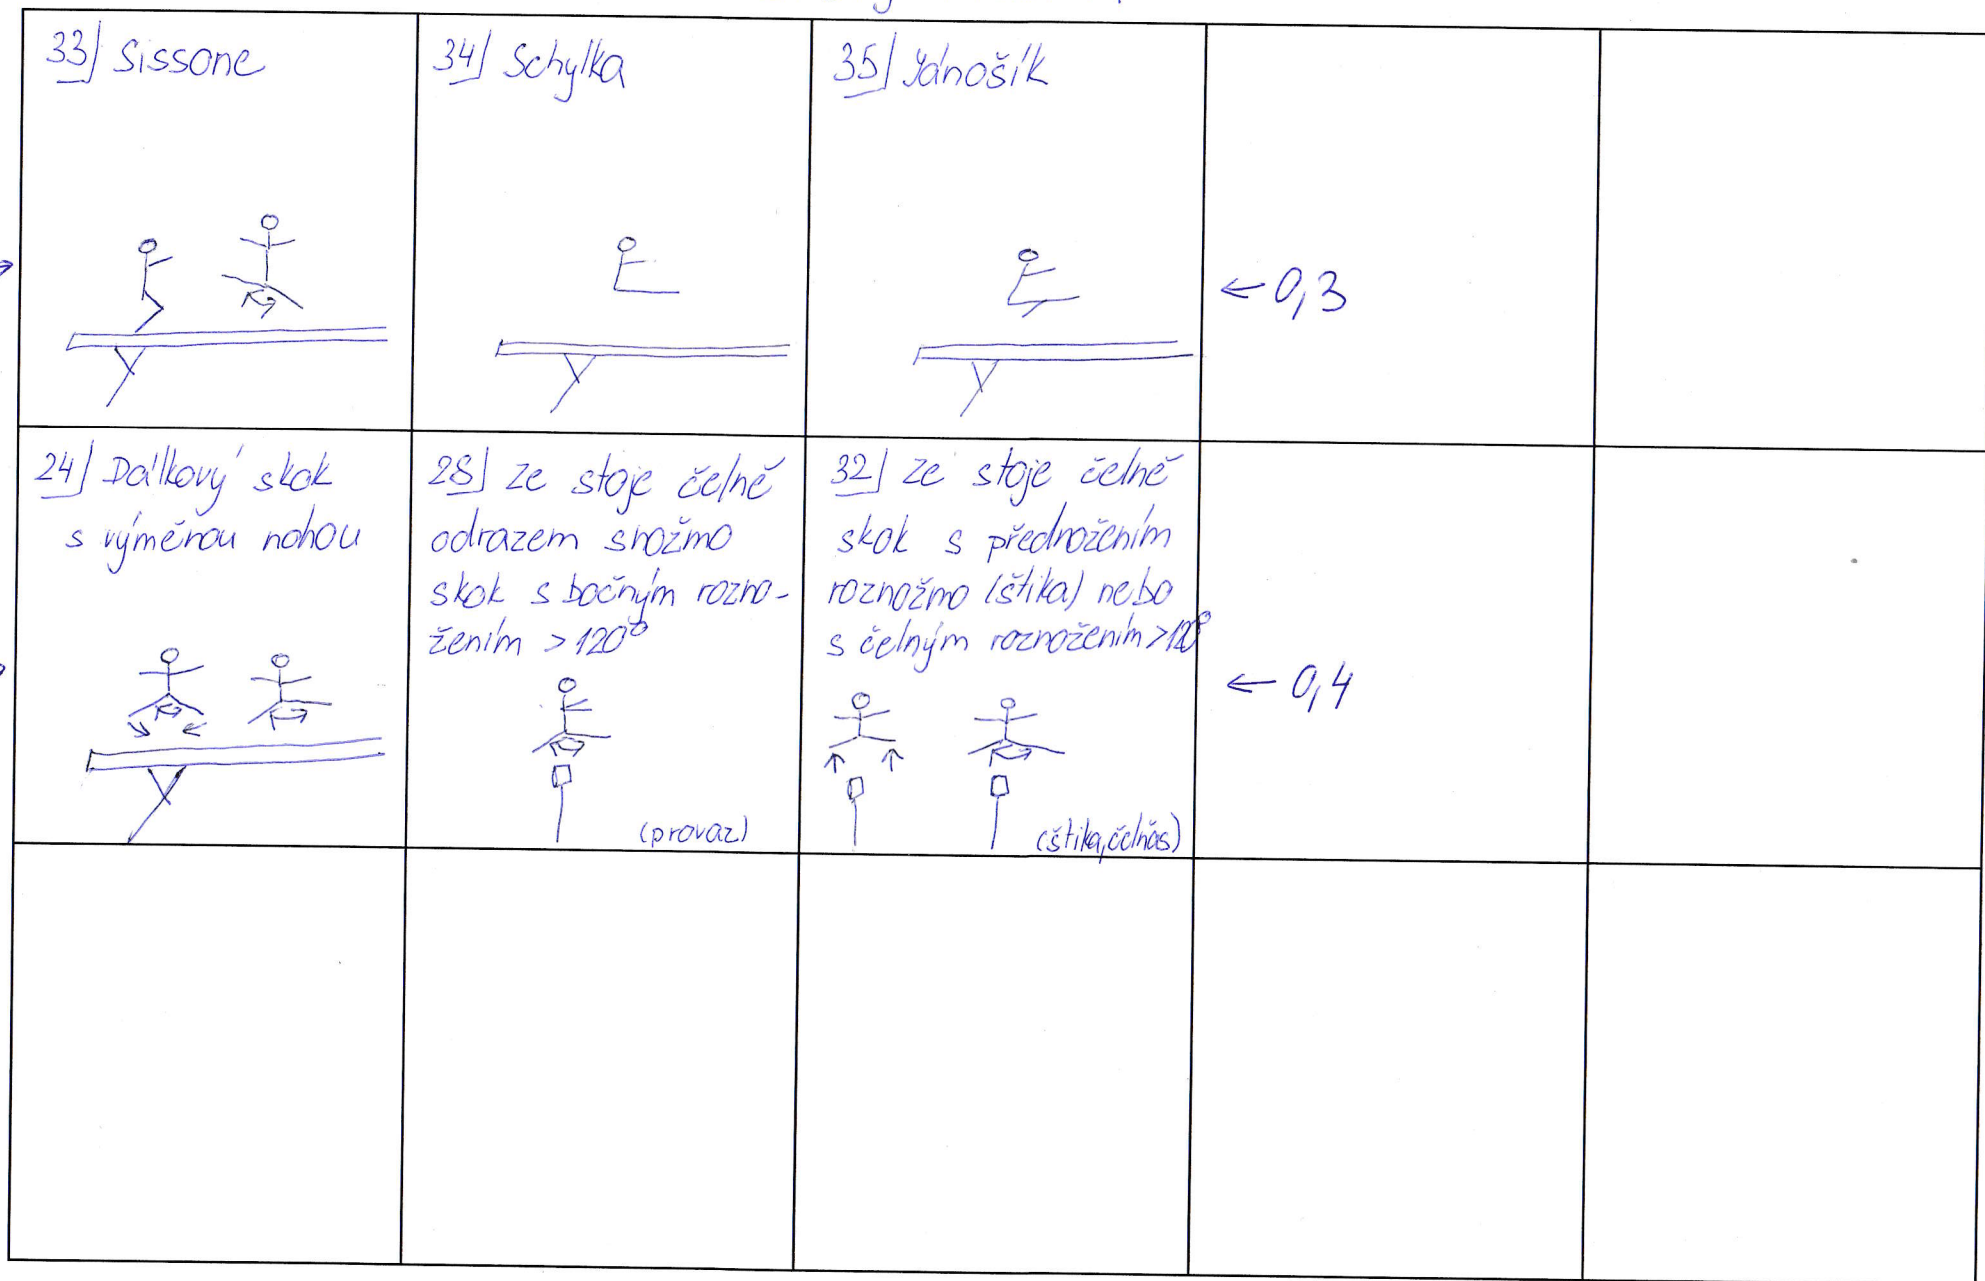 33) Sissone
34) Schylka
35) Jánošík
← 0,3
24) Dálkový skok
s výměnou nohou
28) ze stoje čelně
odrazem snožmo
skok s bočným rozno-
žením > 120°
(provaz)
32) ze stoje čelně
skok s přednožením
roznožmo (štika) nebo
s čelným roznožením > 120°
(štika, čelňás)
← 0,4